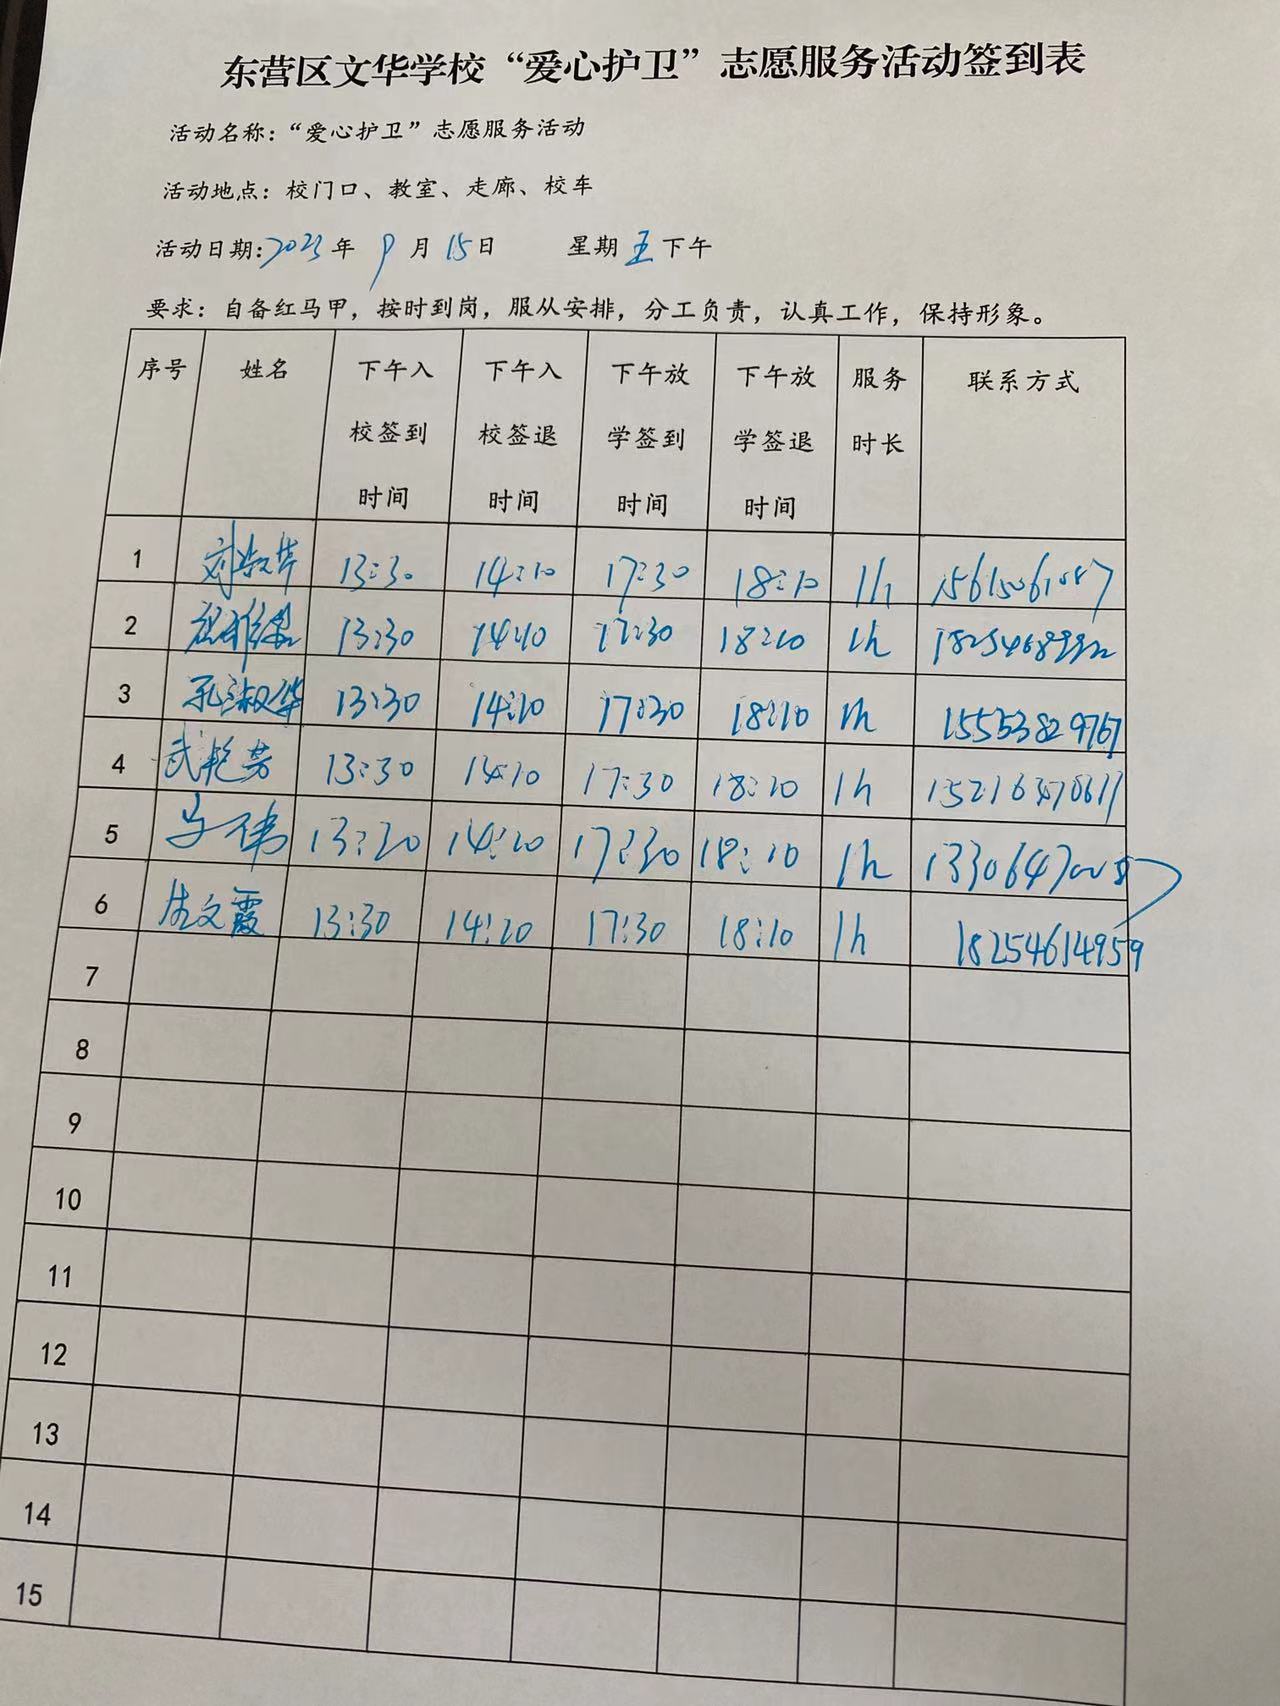 东营区文华学校“爱心护卫”志愿服务活动签到表
活动名称：“爱心护卫”志愿服务活动
活动地点：校门口、教室、走廊、校车
活动日期：2023年 9月 15日 星期五下午
要求：自备红马甲，按时到岗，服从安排，分工负责，认真工作，保持形象。
序号 姓名 下午入校签到时间 下午入校签退时间 下午放学签到时间 下午放学签退时间 服务时长 联系方式
1 刘淑芹 13:30 14:10 17:30 18:10 1h
2 13:30 14:10 17:30 18:10 1h
3 孔淑华 13:30 14:10 17:30 18:10 1h 15553829767
4 武艳芳 13:30 14:10 17:30 18:10 1h
5 13:20 14:10 17:30 18:10 1h
6 文霞 13:30 14:10 17:30 18:10 1h 18254614959
7
8
9
10
11
12
13
14
15